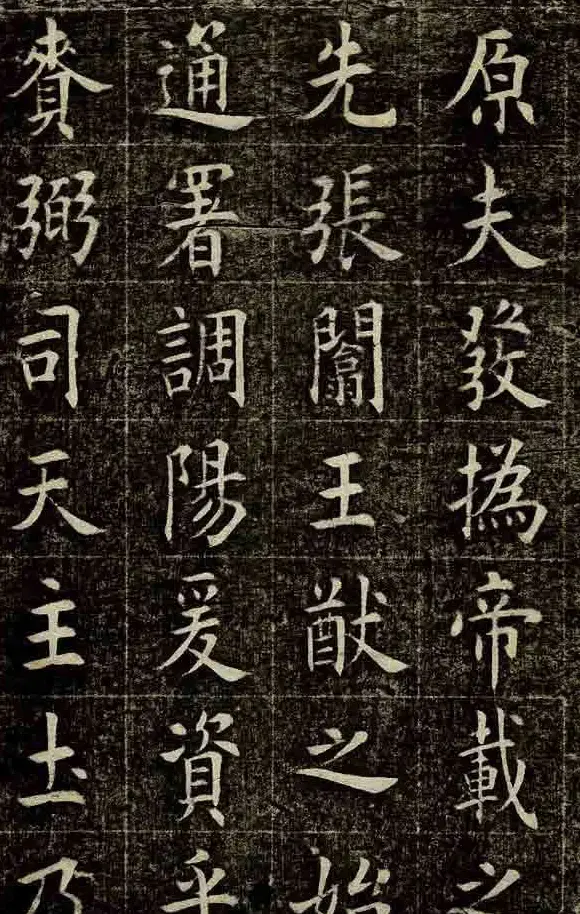 原夫發撝帝載之
先張王猷之始
通署調陽爰資乎
賚弼司天主圡乃